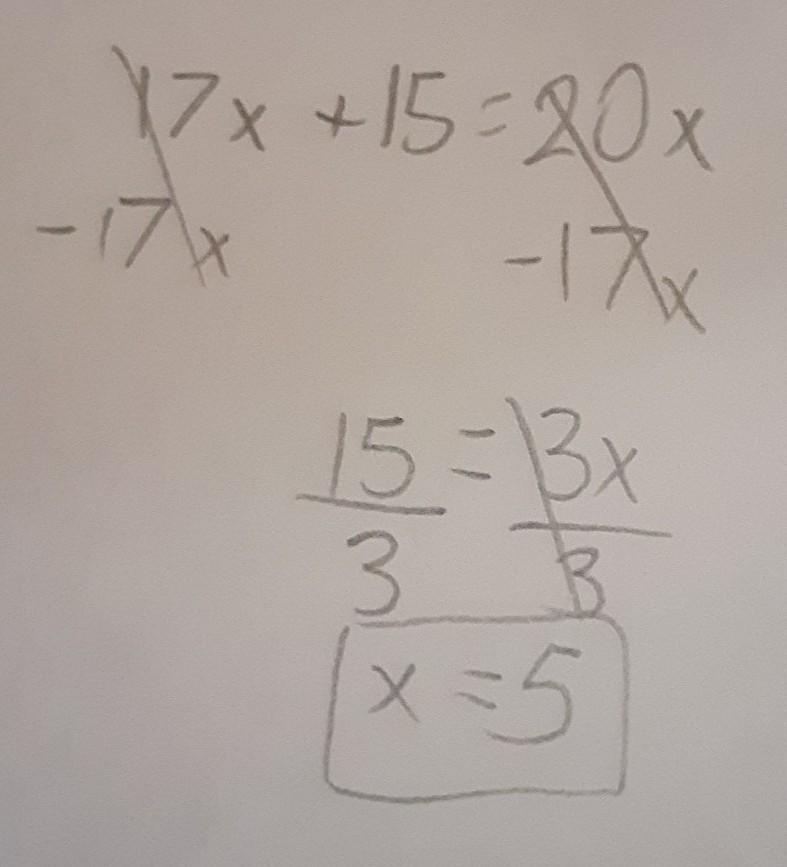 17x + 15 = 20x
-17x -17x
15 = 3x
3 3
x = 5